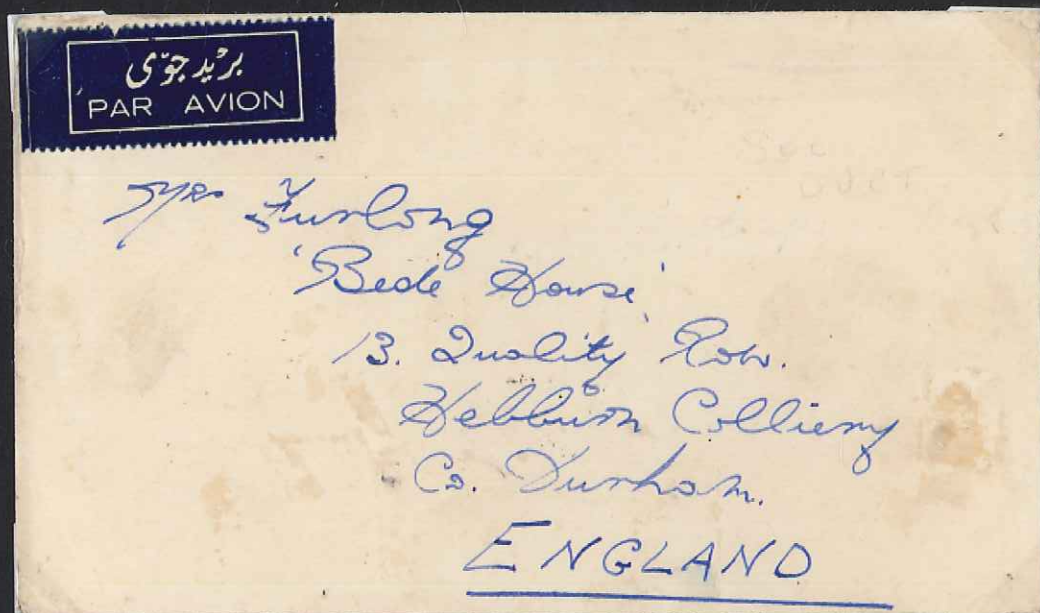 بريد جوّى
PAR AVION
Mrs Furlong
'Bede House'
13. Quality Row.
Hebburn Colliery
Co. Durham.
ENGLAND